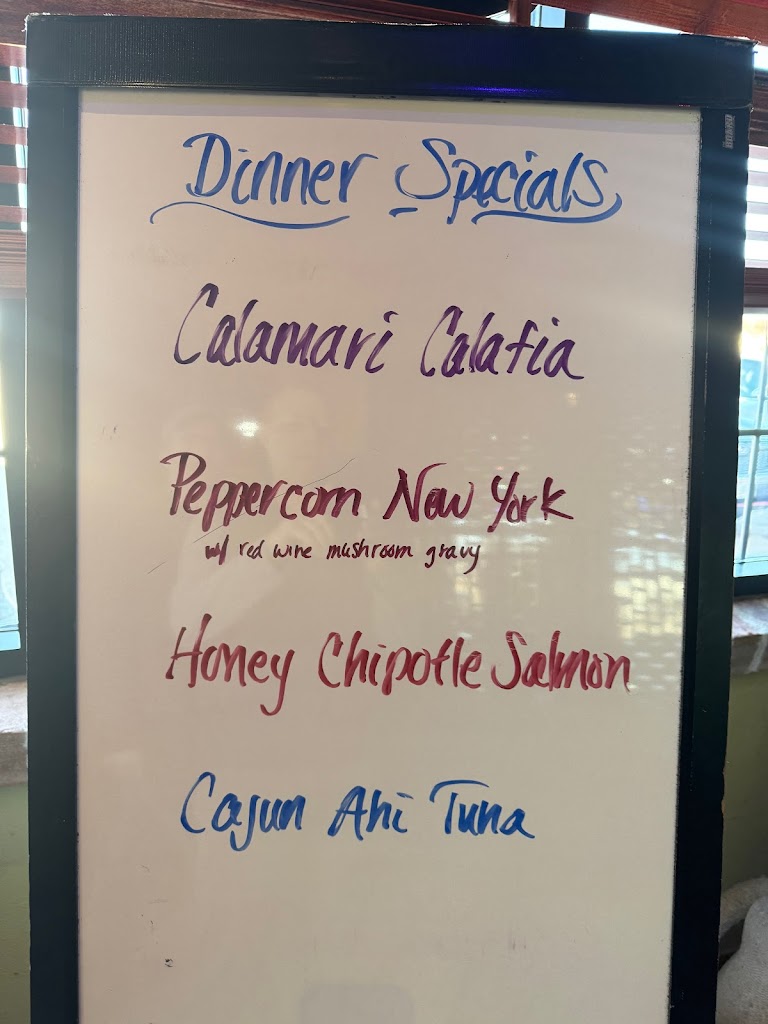 Dinner Specials
Calamari Calafia
Peppercorn New York
w/ red wine mushroom gravy
Honey Chipotle Salmon
Cajun Ahi Tuna